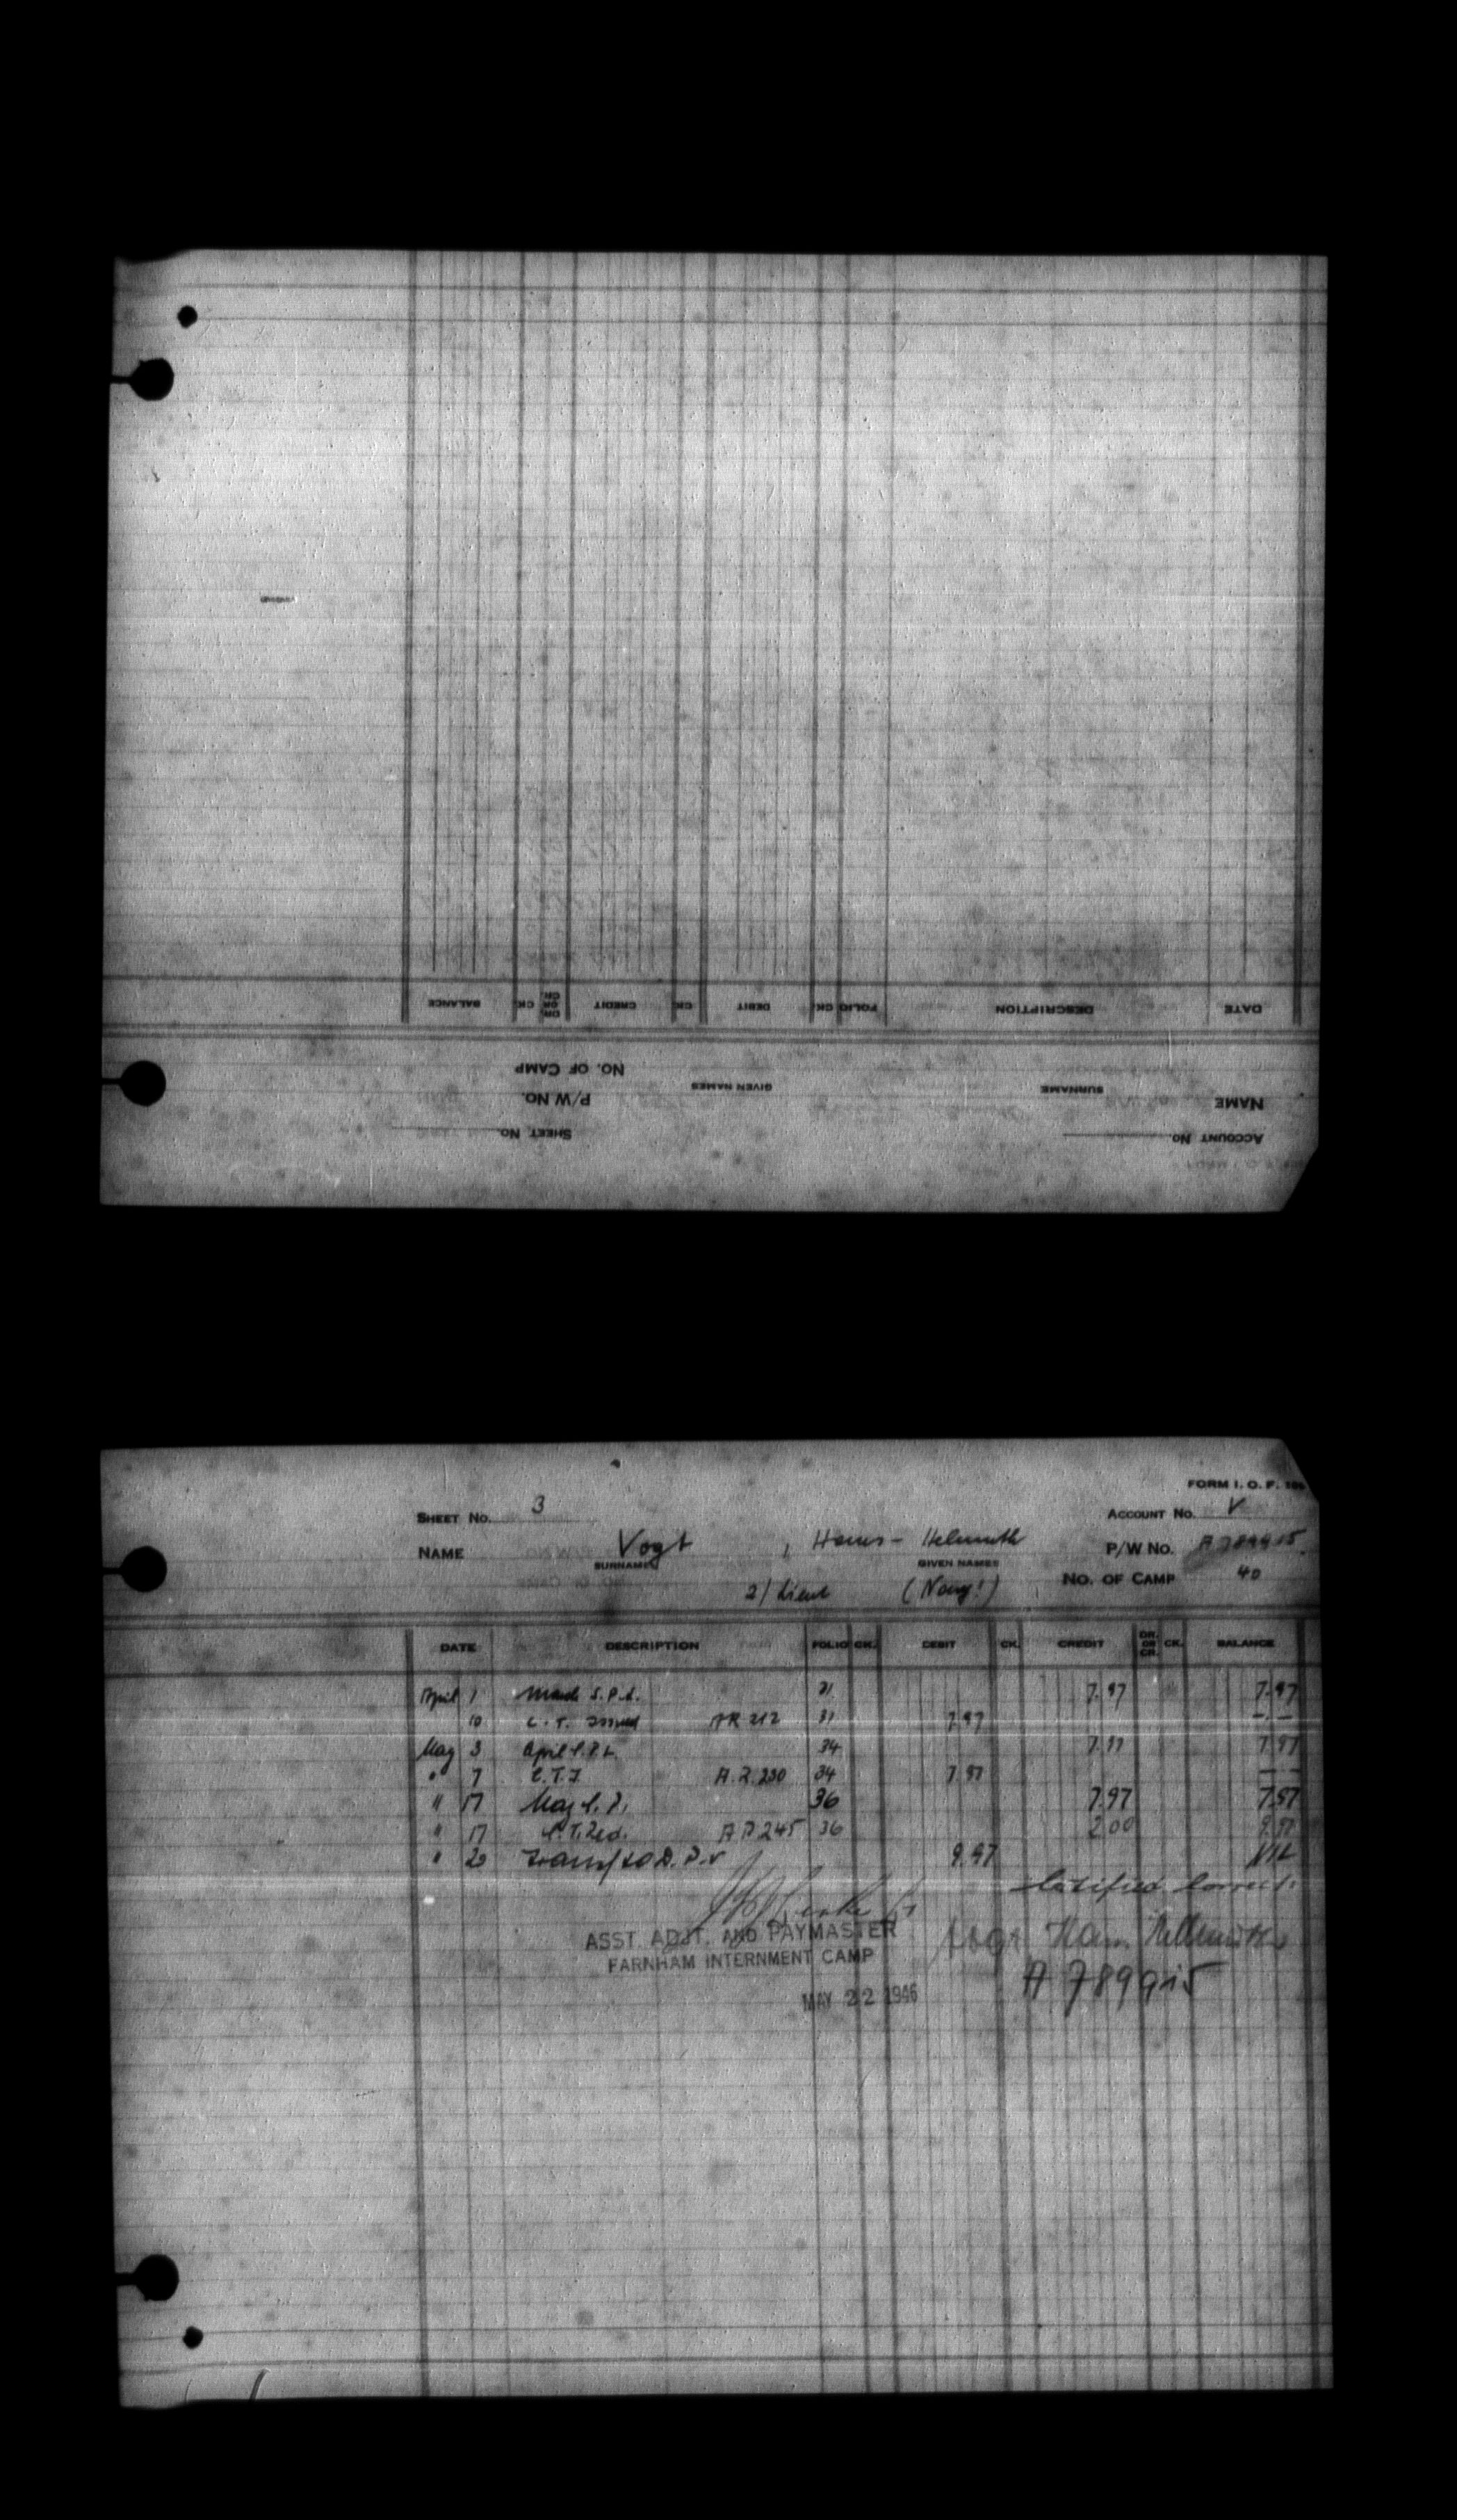 BALANCE CK. DR. OR CR. CREDIT CK. DEBIT CK. FOLIO DESCRIPTION DATE
NO. OF CAMP GIVEN NAMES SURNAME
P/W NO. NAME
SHEET NO. ACCOUNT NO.
FORM I. O. F.
SHEET NO. 3 ACCOUNT NO. V
NAME Vogt, Hans-Helmuth P/W NO. A 789915
SURNAME GIVEN NAMES
2/Lieut (Navy!) NO. OF CAMP 40
DATE DESCRIPTION FOLIO CK. DEBIT CK. CREDIT DR. OR CR. CK. BALANCE
April 1 March S.P.L. 31 7.97 7.97
10 C.T. Issued AR 212 31 7.97 —.—
May 3 April S.P.L. 34 7.97 7.97
" 7 C.T.I. A.R.230 34 7.97 — —
" 17 May S.P. 36 7.97 7.97
" 17 C.T. Red. AR 245 36 2.00 9.97
" 20 Transf to D.P.W 9.97 NIL
Certified Correct:
ASST. ADJT. AND PAYMASTER
Vogt Hans Hellmuth
FARNHAM INTERNMENT CAMP
A 789915
MAY 22 1946